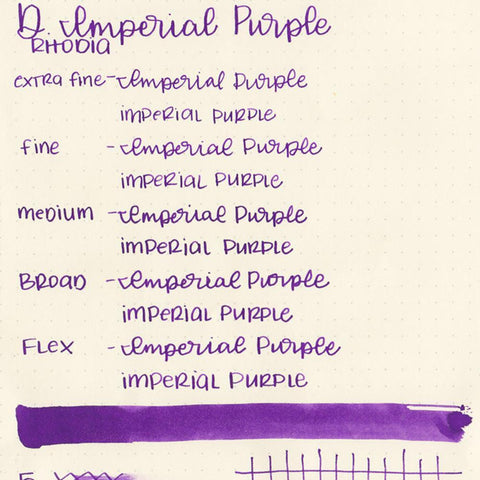 D. Imperial Purple
RHODIA
extra fine - Imperial Purple
imperial purple
fine - Imperial Purple
imperial purple
medium - Imperial Purple
imperial purple
Broad - Imperial Purple
imperial purple
Flex - Imperial Purple
imperial purple